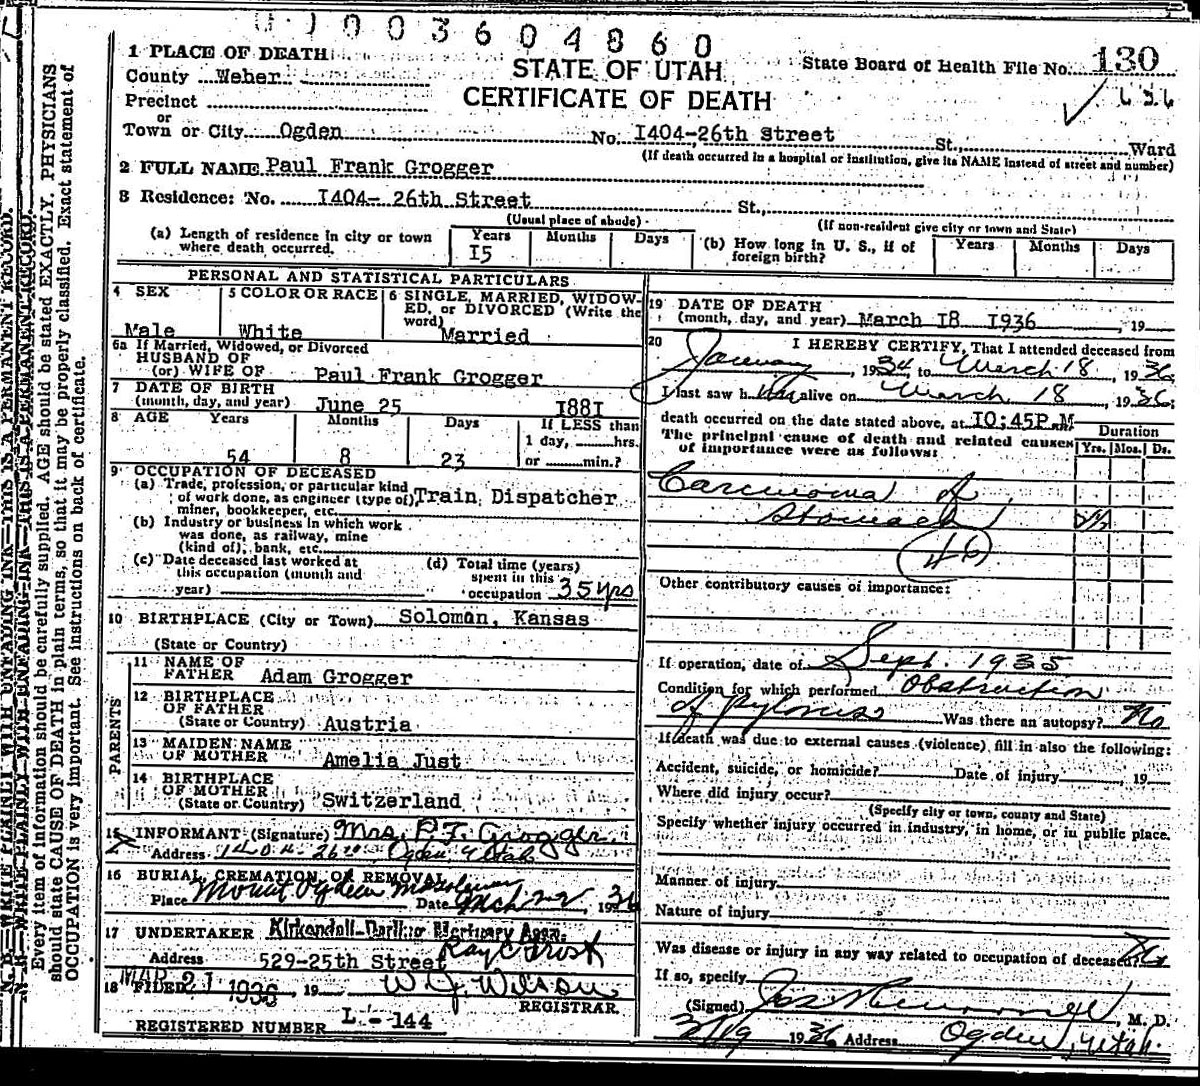 003604860
1 PLACE OF DEATH
STATE OF UTAH
State Board of Health File No. 130
County Weber
CERTIFICATE OF DEATH
Precinct
or
Town or City Ogden No. I404-26th Street St., Ward
(If death occurred in a hospital or institution, give its NAME instead of street and number)
2 FULL NAME Paul Frank Grogger
3 Residence: No. I404- 26th Street St.,
(Usual place of abode) (If non-resident give city or town and State)
(a) Length of residence in city or town where death occurred. Years I5 Months Days
(b) How long in U. S., if of foreign birth? Years Months Days
PERSONAL AND STATISTICAL PARTICULARS
4 SEX
Male
5 COLOR OR RACE
White
6 SINGLE, MARRIED, WIDOW-
ED, or DIVORCED (Write the
word) Married
6a If Married, Widowed, or Divorced
HUSBAND OF
(or) WIFE OF Paul Frank Grogger
7 DATE OF BIRTH
(month, day, and year) June 25 I88I
8 AGE Years Months Days If LESS than
1 day, hrs.
54 8 23 or min.?
9 OCCUPATION OF DECEASED
(a) Trade, profession, or particular kind
of work done, as engineer (type of), Train Dispatcher
miner, bookkeeper, etc.
(b) Industry or business in which work
was done, as railway, mine
(kind of), bank, etc.
(c) Date deceased last worked at
this occupation (month and
year)
(d) Total time (years)
spent in this
occupation 35 yrs
10 BIRTHPLACE (City or Town) Soloman, Kansas
(State or Country)
PARENTS
11 NAME OF
FATHER Adam Grogger
12 BIRTHPLACE
OF FATHER
(State or Country) Austria
13 MAIDEN NAME
OF MOTHER Amelia Just
14 BIRTHPLACE
OF MOTHER
(State or Country) Switzerland
15 INFORMANT (Signature) Mrs. P. F. Grogger
Address 1404 - 26th, Ogden, Utah
16 BURIAL, CREMATION OR REMOVAL
Place Mount Ogden Mosoleum Date Mch 22, 1936
17 UNDERTAKER Kirkendall-Darling Mortuary Assn.
Address 529-25th Street
18 FILED MAR 21 1936, 19 W. J. Wilson
REGISTRAR
REGISTERED NUMBER L - 144
19 DATE OF DEATH
(month, day, and year) March I8 I936, 19
20 I HEREBY CERTIFY, That I attended deceased from
January, 1934 to March 18, 1936
I last saw him alive on March 18, 1936;
death occurred on the date stated above, at I0:45P.M.
The principal cause of death and related causes
of importance were as follows:
Duration
Yrs. Mos. Ds.
Carcinoma of
Stomach
(46)
Other contributory causes of importance:
If operation, date of Sept. 1935
Condition for which performed Obstruction
of pylorus Was there an autopsy? No
If death was due to external causes (violence), fill in also the following:
Accident, suicide, or homicide? Date of injury, 19
Where did injury occur?
(Specify city or town, county and State)
Specify whether injury occurred in industry, in home, or in public place.
Manner of injury
Nature of injury
Was disease or injury in any way related to occupation of deceased? No
If so, specify
(Signed) M. D.
3/19 1936 Address Ogden, Utah
N. B.—WRITE PLAINLY WITH UNFADING INK—THIS IS A PERMANENT RECORD.
Every item of information should be carefully supplied. AGE should be stated EXACTLY. PHYSICIANS
should state CAUSE OF DEATH in plain terms, so that it may be properly classified. Exact statement of
OCCUPATION is very important. See instructions on back of certificate.